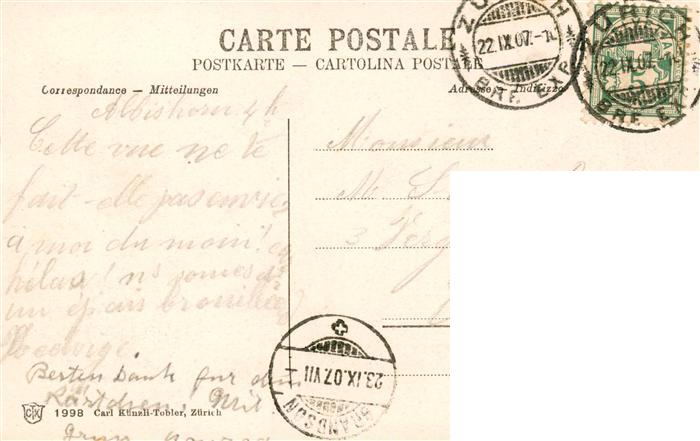 CARTE POSTALE
POSTKARTE — CARTOLINA POSTALE
Correspondance — Mitteilungen
Adresse — Indirizzo
ZÜRICH
22.IX.07.
BRF. EXP.
ZÜRICH
22.IX.07.
BRF. EX
Albishorn 4 h
Cette vue ne te
fait-elle pas envie
à moi du moins!
hélas! ns somes ds
un épais brouillard
Hedwige
Monsieur
M.
3
Besten Dank für die
Kärtchen! Mit
GRANDSON
23.IX.07.VII
CTK 1998 Carl Künzli-Tobler, Zürich
Gruss